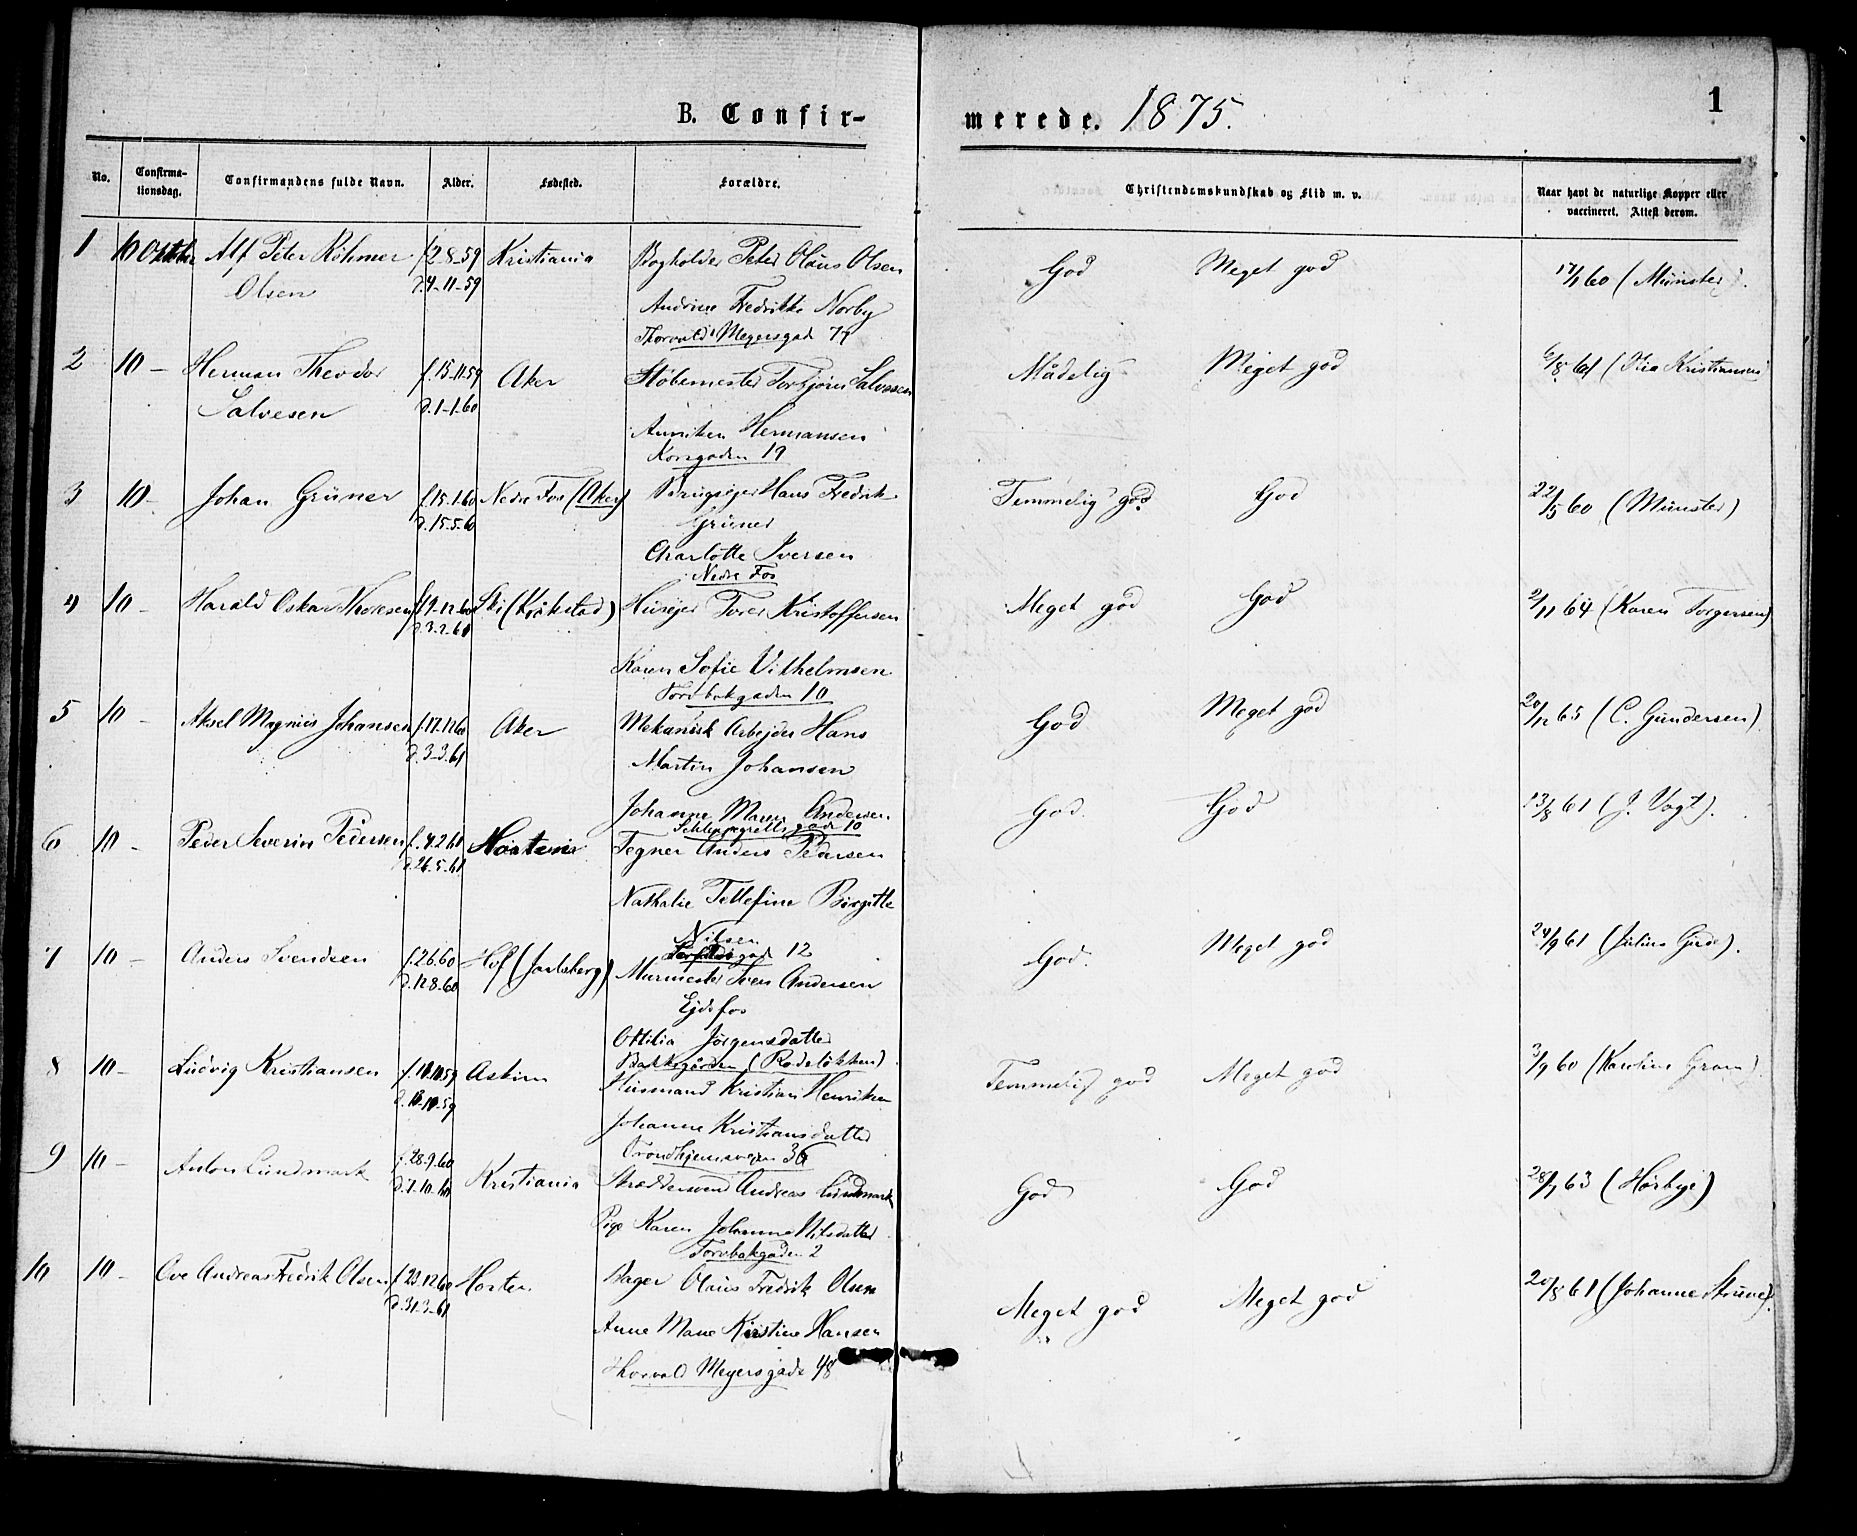 B. Confir-
merede. 1875.
1
No.
Confirma-
tionsdag.
Confirmandens fulde Navn.
Alder.
Fødested.
Forældre.
Christendomskundskab og Flid m. v.
Naar havt de naturlige Kopper eller
vaccineret. Attest derom.
1 10 Oktbr Alf Peter Röhmer f. 2-8-59 Kristiania Bogholder Peter Olaus Olsen God Meget god 17/1 60 (Münster).
Olsen d. 4-11-59
Andrine Fredrikke Norby
Thorvald Meyersgad 77
2 10 - Herman Theodor f. 15-11-59 Aker Støbemester Torbjörn Salvesen Mådelig Meget god 6/8 61 (Kristiansen)
Salvesen d. 1-1-60
Anniken Hermansen
Korsgaden 19
3 10 - Johan Grüner f. 15.1.60 Nedre Fos (Aker) Brugsejer Hans Fredrik Temmelig god God 22/5 60 (Münster)
d. 15.5.60 Grüner
Charlotte Iversen
Nedre Fos
4 10 - Harald Oskar Thoresen f. 19-12-60 Ski (Kråkstad) Husejer Tores Kristoffersen Meget god God 2/11 64 (Karen Torgersen)
d. 3-2-61
Karen Sofie Vilhelmsen
Torvbakgaden 10
5 10 - Aksel Magnus Johansen f. 17.12.60 Aker Mekanisk Arbejder Hans God Meget god 20/12 65 (C. Gundersen).
d. 3-3-61 Martin Johansen
Johanne Maria Andersen
Schleppegrells gade 10
6 10 - Peder Severin Pedersen f. 4.2.61 Tegner Anders Pedersen God. God 13/8 61 (J. Vogt).
d. 26.5.61
Nathalie Tellefine Birgitte
Nilsen
12
7 10 - Anders Svendsen f. 2.6.60 Hof (Jarlsberg) Murmester Sven Andersen God. Meget god 24/9 61 (Julius Gude).
d. 12.8.60 Ejdsfos
Ottilia Jörgensdatter
Bakkegården (Rodeløkken).
8 10 - Ludvig Kristiansen Askim Husmand Kristian Henriksen Temmelig god Meget god 3/9 60 (Karoline Gram)
Johanne Kristiansdatter
Trondhjemsvejen 36
9 10 - Anton Lundmark f. 28.9.60 Kristiania Skræddersvend Andreas Lundmark God God 28/1 63 (Hørbye)
d. 7.10.60
Pige Karen Johanne Nilsdatter
Torvbakgaden 2
10 10 - Ove Andreas Fredrik Olsen f. 23.12.60 Horten Bager Olaus Fredrik Olsen Meget god Meget god 20/8 61 (Johanne Struve).
d. 31.3.61
Anne Marie Kristine Hansen
Thorvald Meyersgade 48